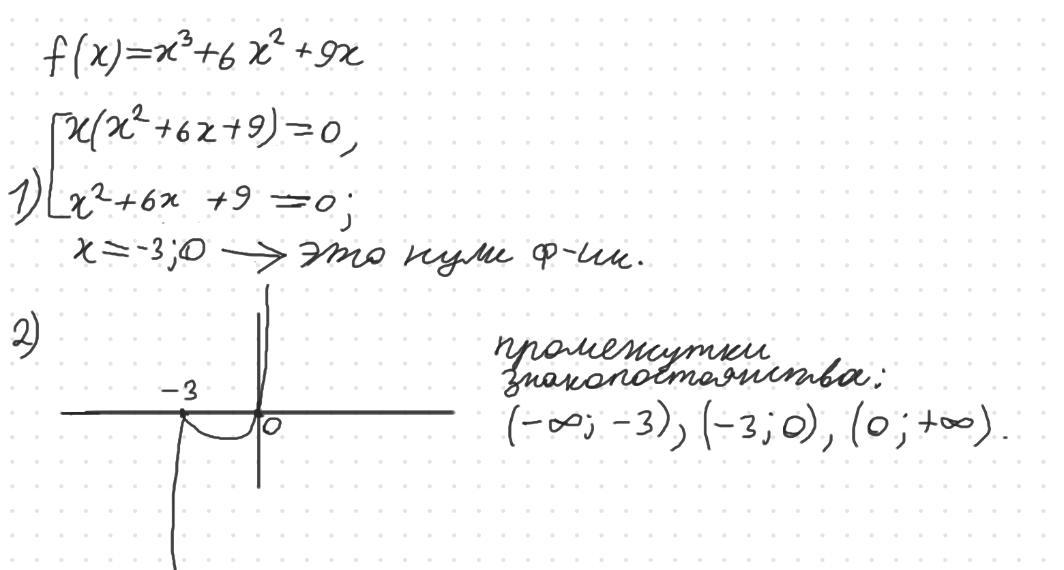 f(x)=x³+6x²+9x
x(x²+6x+9)=0,
1) x²+6x+9=0;
x=-3;0 → это нули ф-ии.
2)
-3
0
промежутки
знакопостоянства:
(-∞; -3), (-3; 0), (0; +∞).